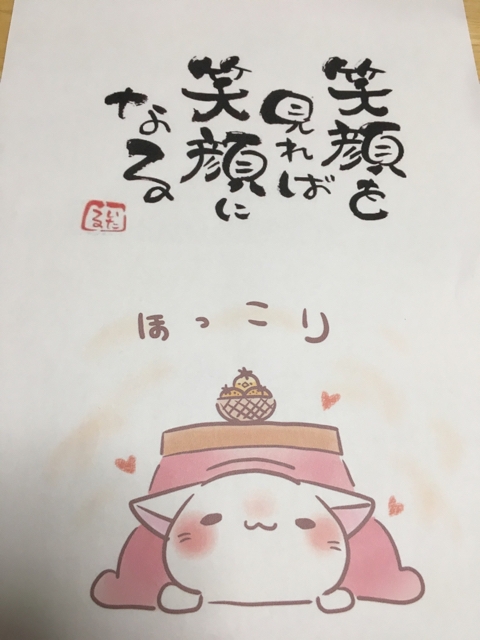 笑顔を
見れば
笑顔に
なる
いたる
ほっこり